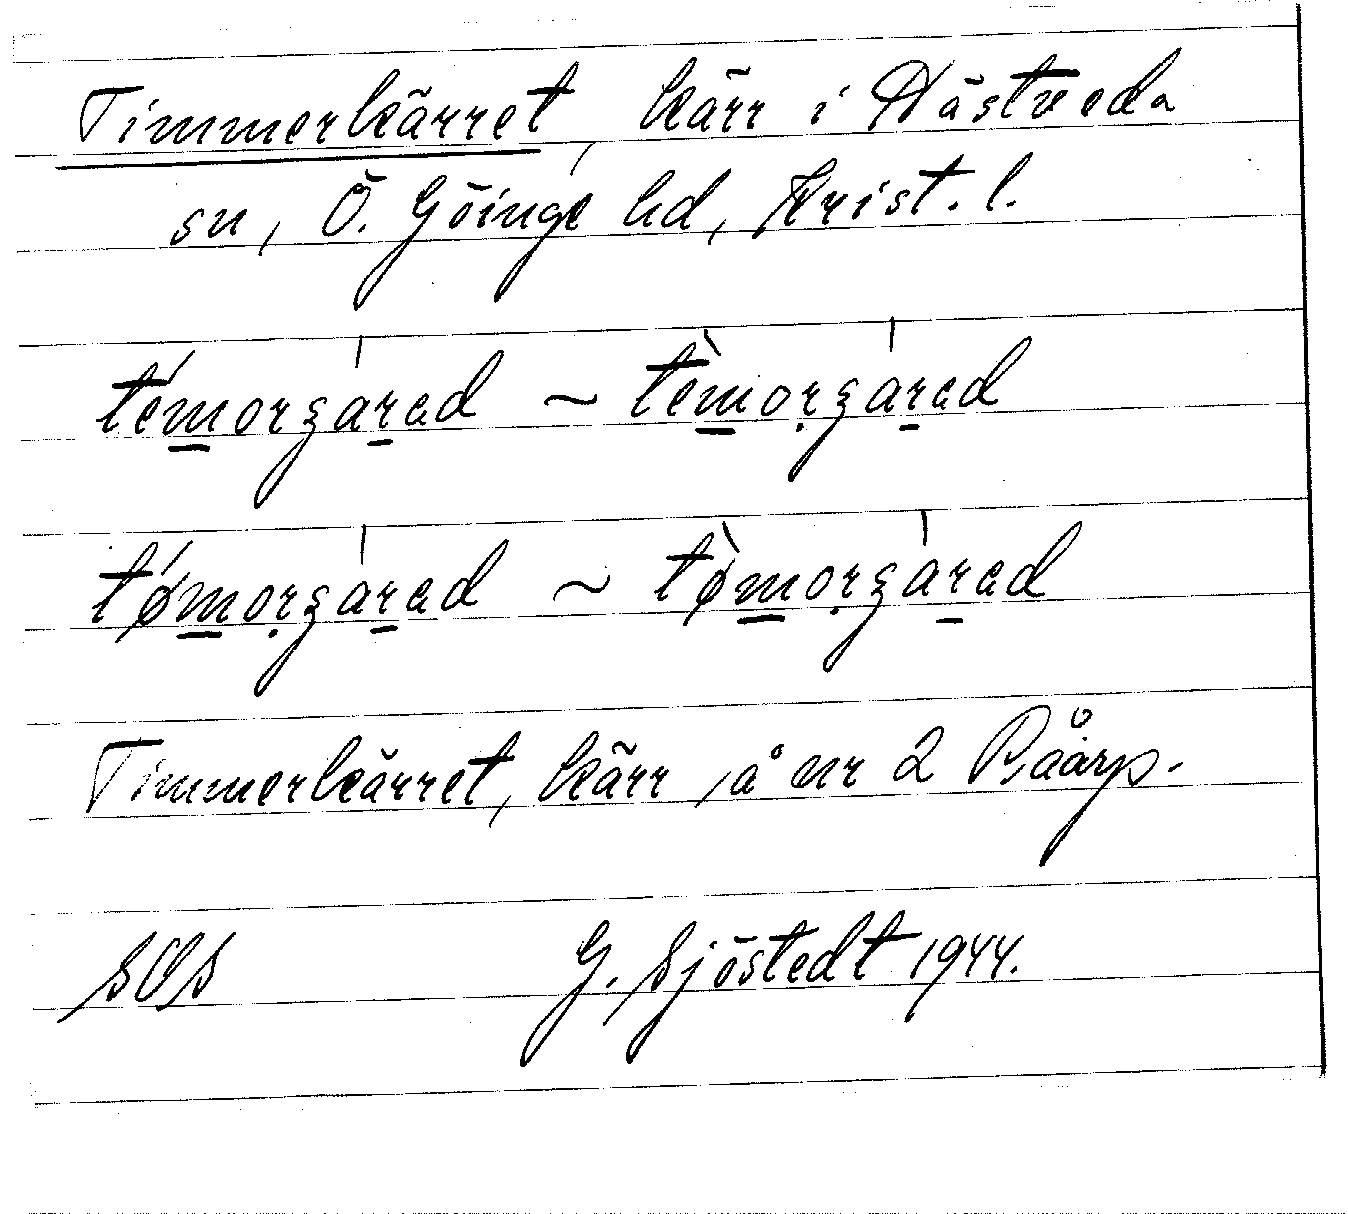 Timmerkärret, kärr i Hästveda
sn, Ö. Göinge hd, Krist. l.
témorʒárad ~ tèmorʒárad
tǿmorʒárad ~ tø̀morʒárad
Timmerkärret, kärr, å nr 2 Råarp.
SOS G. Sjöstedt 1944.